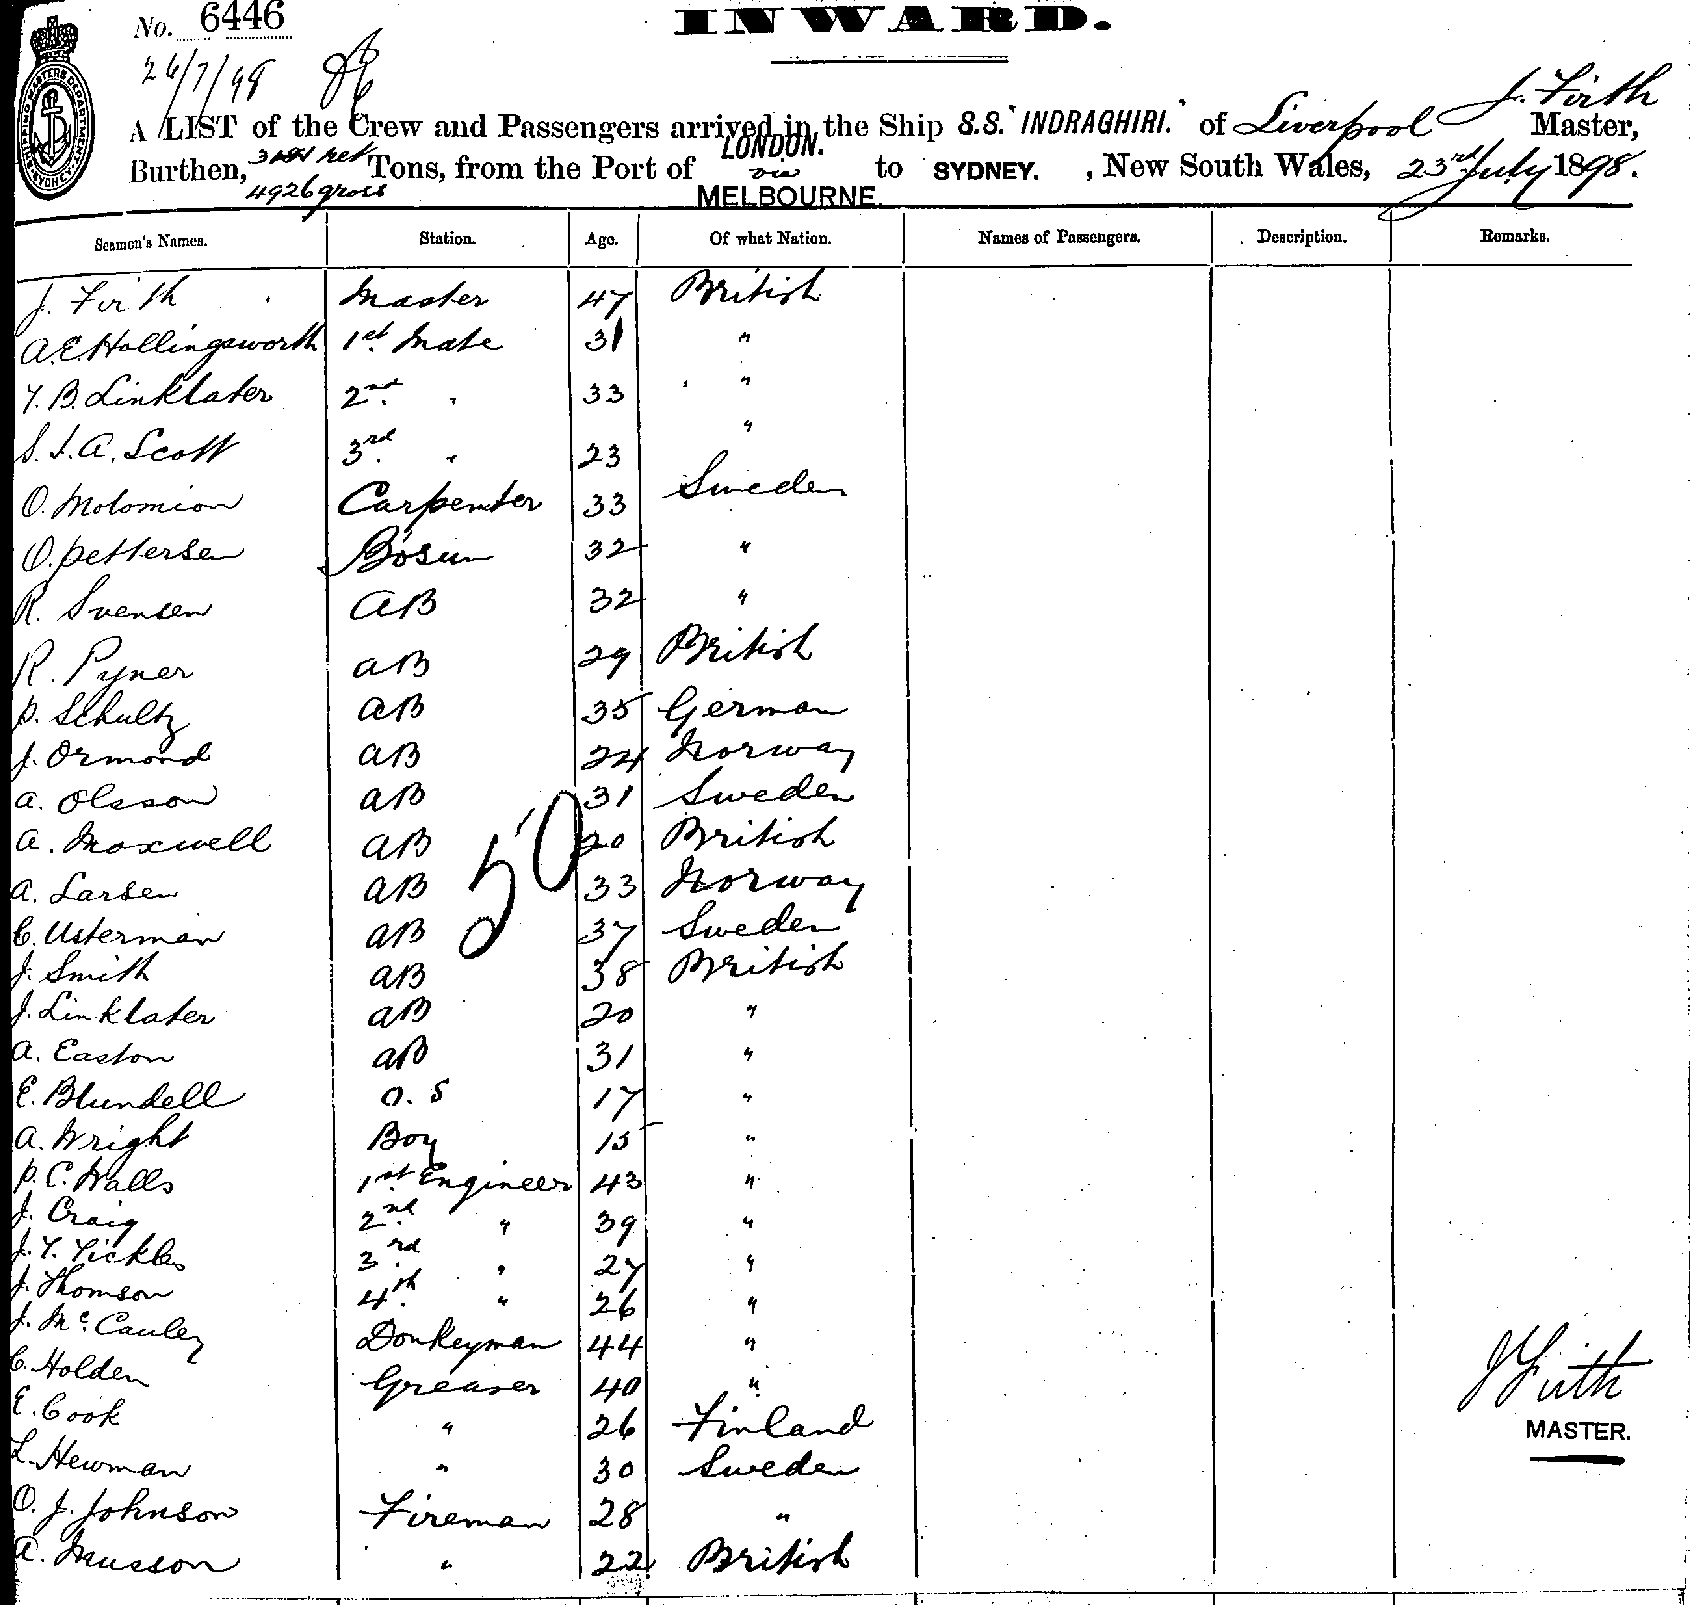 No. 6446
INWARD.
26/7/98
SHIPPING MASTERS DEPARTMENT SYDNEY
J. Firth
A LIST of the Crew and Passengers arrived in the Ship S.S. "INDRAGHIRI." of Liverpool Master,
Burthen, net Tons, from the Port of LONDON. to SYDNEY. , New South Wales, 23rd July 1898.
4926 gross via
MELBOURNE.
Seamen's Names. Station. Age. Of what Nation. Names of Passengers. Description. Remarks.
J. Firth Master 47 British
A.E. Hollingsworth 1st. Mate 31 "
T. B. Linklater 2nd. " 33 "
S. J. A. Scott 3rd. " 23 "
O. Molomion Carpenter 33 Sweden
O. Pettersen Bosun 32 "
R. Svensen AB 32 "
R. Pyner AB 29 British
P. Schultz AB 35 German
J. Ormond AB 24 Norway
A. Olsson AB 31 Sweden
A. Maxwell AB 20 British
50
A. Larsen AB 33 Norway
C. Usterman AB 37 Sweden
J. Smith AB 38 British
J. Linklater AB 20 "
A. Easton AB 31 "
E. Blundell O. S 17 "
A. Wright Boy 15 "
P. C. Walls 1st. Engineer 43 "
J. Craig 2nd. " 39 "
J. T. Tickles 3rd. " 27 "
J. Thomson 4th. " 26 "
J. McCauley Donkeyman 44 "
C. Holden Greaser 40 "
E. Cook " 26 Finland
L. Newman " 30 Sweden
O. J. Johnson Fireman 28 "
A. Musson " 22 British
J Firth
MASTER.